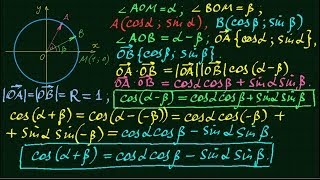 ∠AOM = α, ∠BOM = β,
A(cosα; sinα), B(cosβ; sinβ)
∠AOB = α-β; OA{cosα; sinα},
OB{cosβ; sinβ}.
OA·OB = |OA||OB|cos(α-β)
OA·OB = cosαcosβ + sinαsinβ.
|OA|=|OB|=R=1; cos(α-β)=cosαcosβ+sinαsinβ
cos(α+β)=cos(α-(-β))=cosαcos(-β)+
+sinαsin(-β)=cosαcosβ-sinαsinβ.
cos(α+β)=cosαcosβ-sinαsinβ.
y
A
B
α
β
O
x